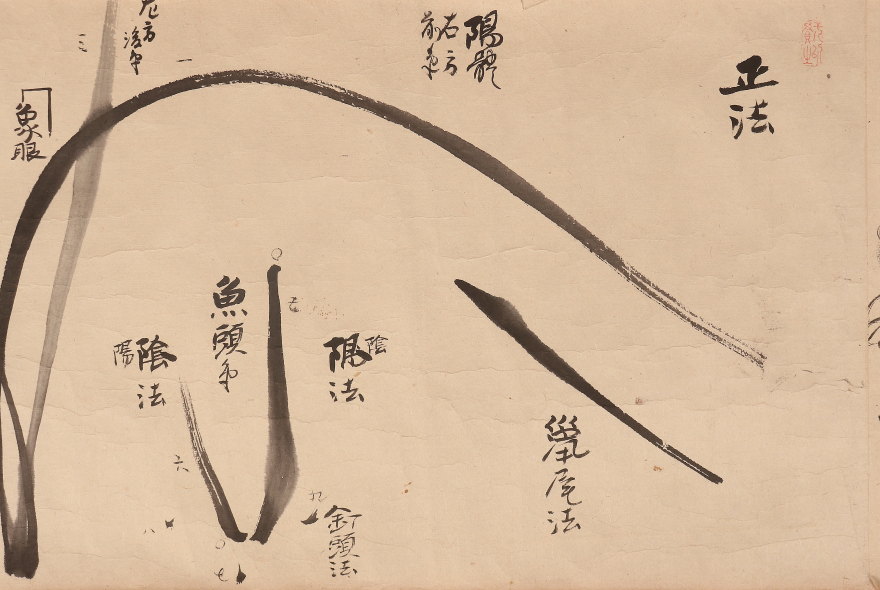 正法
陽體
右方
前
左方
後
一
三
象眼
鼠尾法
陰
陽法
五
魚頭
陰法
陽
六
九
釘頭法
七
八